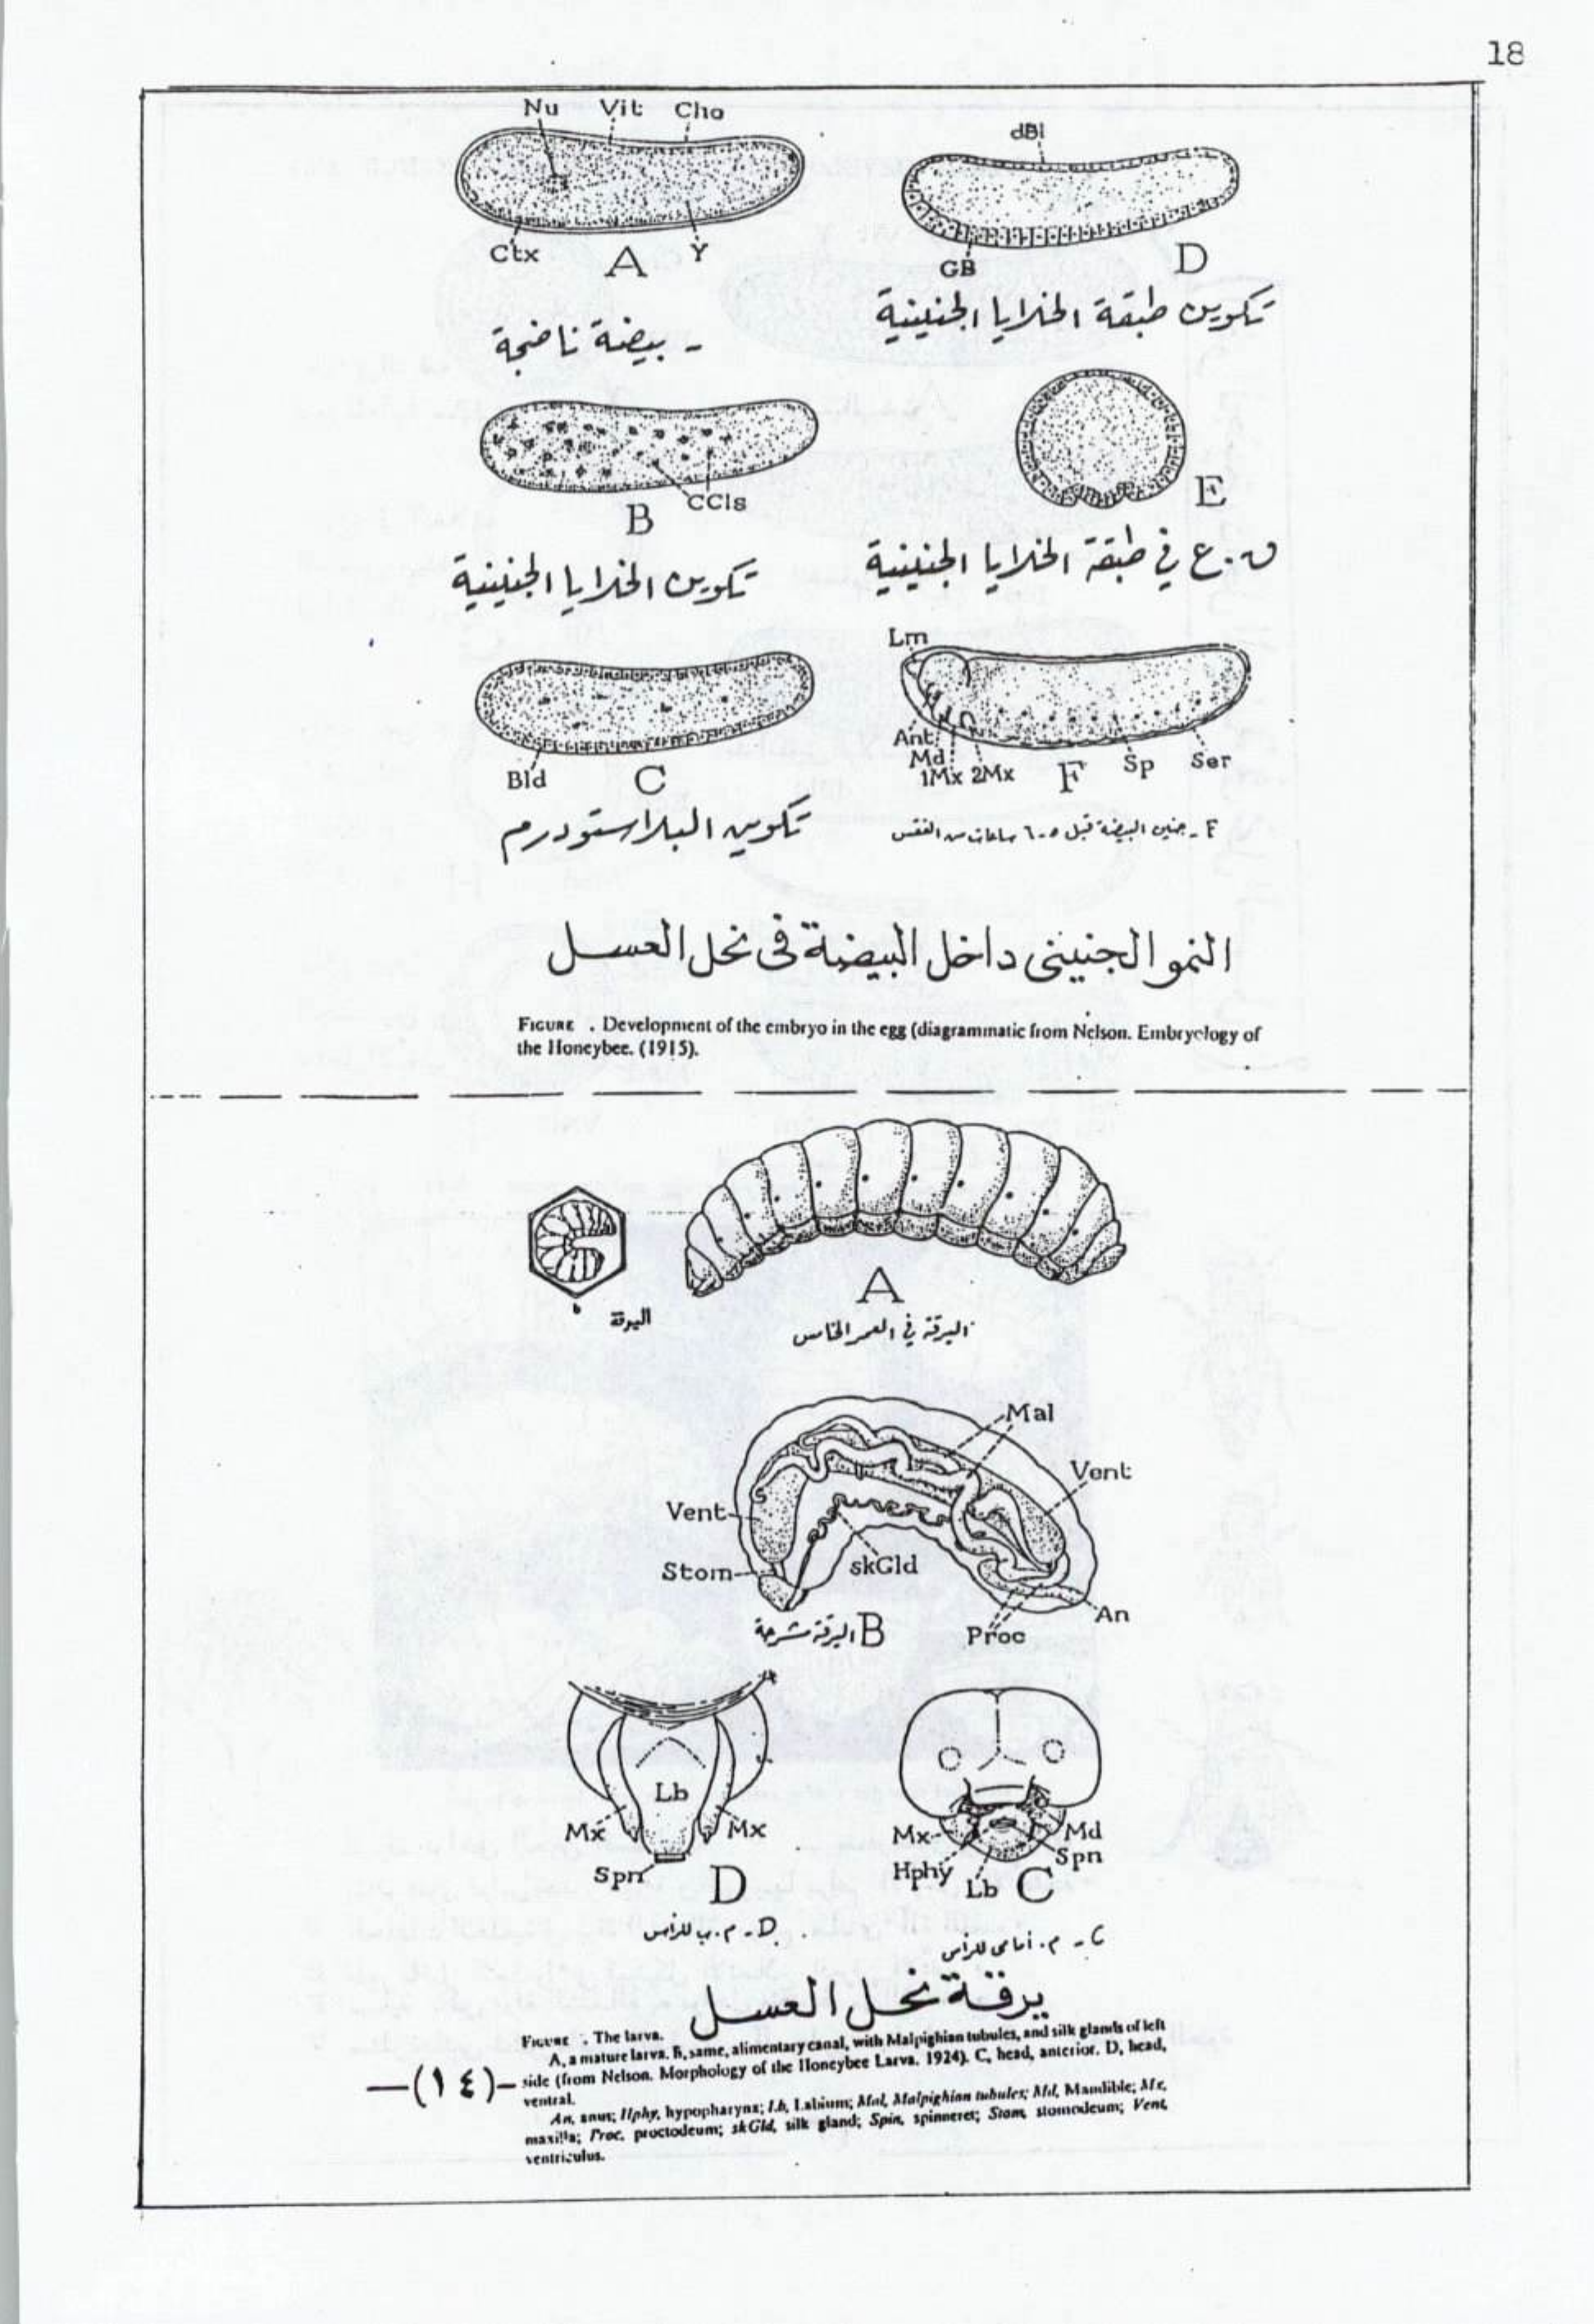 18
Nu Vit Cho
Ctx A Y
ـ بيضة ناضجة
dBl
GB D
تكوين طبقة الخلايا الجنينية
B CCls
تكوين الخلايا الجنينية
E
ق.ع في طبقة الخلايا الجنينية
Bld C
تكوين البلاستودرم
Lm
Ant
Md
1Mx 2Mx F Sp Ser
F ـ جنين البيضة قبل ٥-٦ ساعات من الفقس
النمو الجنينى داخل البيضة فى نحل العسل
FIGURE . Development of the embryo in the egg (diagrammatic from Nelson. Embryology of
the Honeybee. (1915).
اليرقة
A
اليرقة في العمر الخامس
Mal
Vent
Vent
Stom
skGld
An
Proc
B اليرقة مشرحة
Lb
Mx Mx
Spn D
D ـ م.ب للرأس
Mx Md
Hphy Spn
Lb C
C ـ م. أمامى للرأس
يرقة نحل العسل
FIGURE . The larva.
A, a mature larva. B, same, alimentary canal, with Malpighian tubules, and silk glands of left
side (from Nelson. Morphology of the Honeybee Larva. 1924). C, head, anterior. D, head,
ventral.
An, anus; Hphy, hypopharynx; Lb, Labium; Mal, Malpighian tubules; Md, Mandible; Mx,
maxilla; Proc, proctodeum; skGld, silk gland; Spin, spinneret; Stom, stomodeum; Vent,
ventriculus.
—(١٤)—